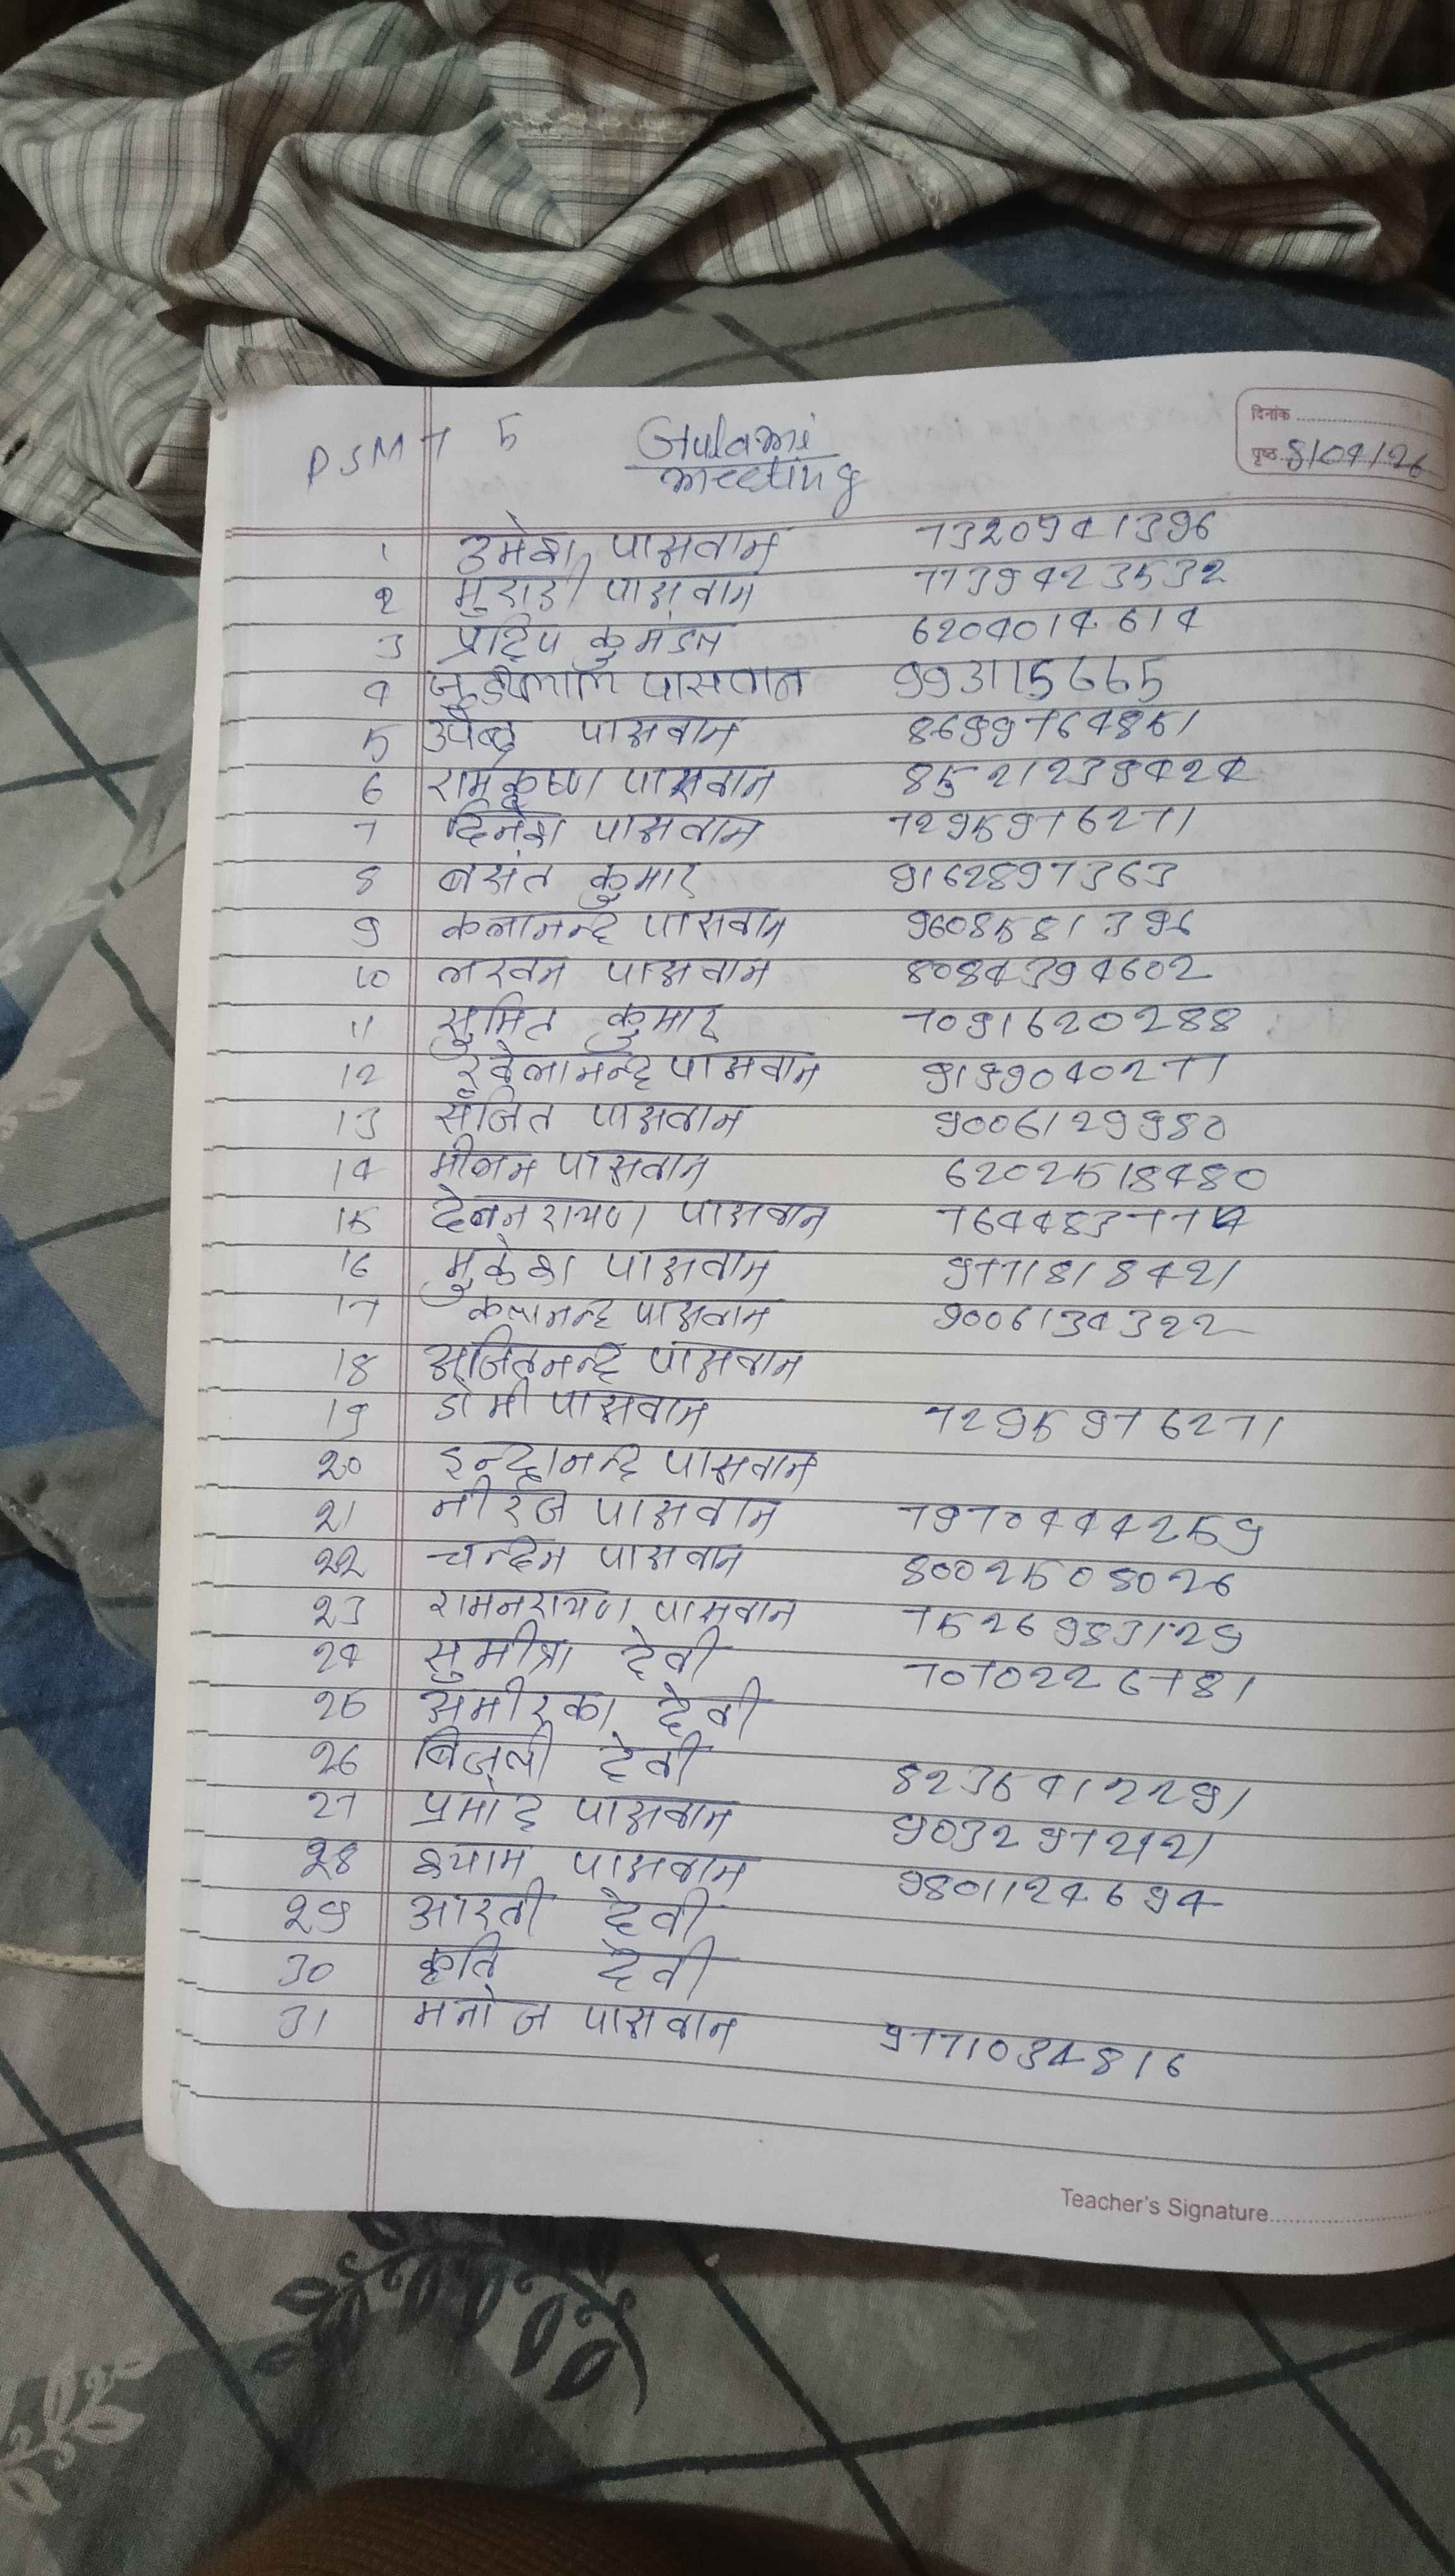 PSMT 5 Gulami
meeting
दिनांक
पृष्ठ 8/04/26
1 उमेश पासवान 7320941396
2 मुरारी पासवान 7739423532
3 प्रदिप कु मंडल 6204014614
4 पासवान 993115665
5 उपेन्द्र पासवान 8699764851
6 रामकृष्ण पासवान 8521239424
7 दिनेश पासवान 7295976271
8 बसंत कुमार 9162897363
9 कलानन्द पासवान 9608581396
10 लखन पासवान 8084394602
11 सुमित कुमार 7091620288
12 पासवान 9199040277
13 संजित पासवान 9006129980
14 मीलन पासवान 6202518480
15 देवनरायण पासवान 764483774
16 मुकेश पासवान 9771818421
17 कलानन्द पासवान 9006134322
18 अजितनन्द पासवान
19 डोमी पासवान 7295976271
20 इन्द्रानन्द पासवान
21 नीरज पासवान 7970444259
22 चन्दन पासवान 8002508026
23 रामनरायण पासवान 7526983129
24 सुमीत्रा देवी 7070226781
25 अमीरका देवी
26 बिजली देवी 8236412291
27 प्रमोद पासवान 9032972421
28 श्याम पासवान 9801124694
29 आरती देवी
30 कृति देवी
31 मनोज पासवान 9771034816
Teacher's Signature